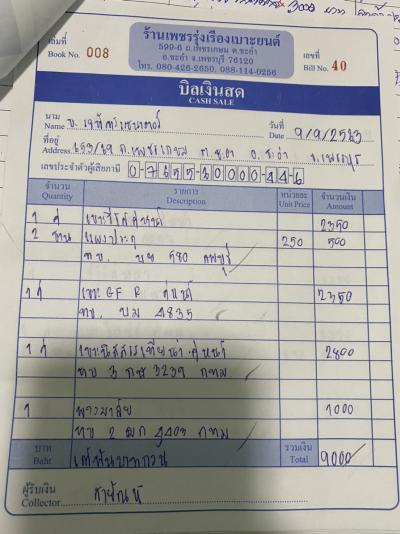 ร้านเพชรรุ่งเรืองเบาะยนต์
599-6 ถ.เพชรเกษม ต.ชะอำ
อ.ชะอำ จ.เพชรบุรี 76120
โทร. 080-426-2650, 088-114-0256
เล่มที่
Book No. 008
เลขที่
Bill No. 40
บิลเงินสด
CASH SALE
นาม
Name
วันที่
Date 9/9/2563
ที่อยู่
Address ถ.เพชรเกษม ต.ชะอำ อ.ชะอำ จ.เพชรบุรี
เลขประจำตัวผู้เสียภาษี 0-7655-60000-44-6
จำนวน
Quantity
รายการ
Description
หน่วยละ
Unit Price
จำนวนเงิน
Amount
1 คู่ 2350
2 250 500
ทบ. บษ 580 เพชรบุรี
1 คู่ เบาะ GF R คู่หน้า 2350
ทบ. บม 4835
1 คู่ คู่หน้า 2800
ทบ 3 กฬ 3239 กทม
1 พวงมาลัย 1000
ทบ 2 ฒก 4403 กทม
บาท
Baht เก้าพันบาทถ้วน
รวมเงิน
Total 9000
ผู้รับเงิน
Collector สายัณห์